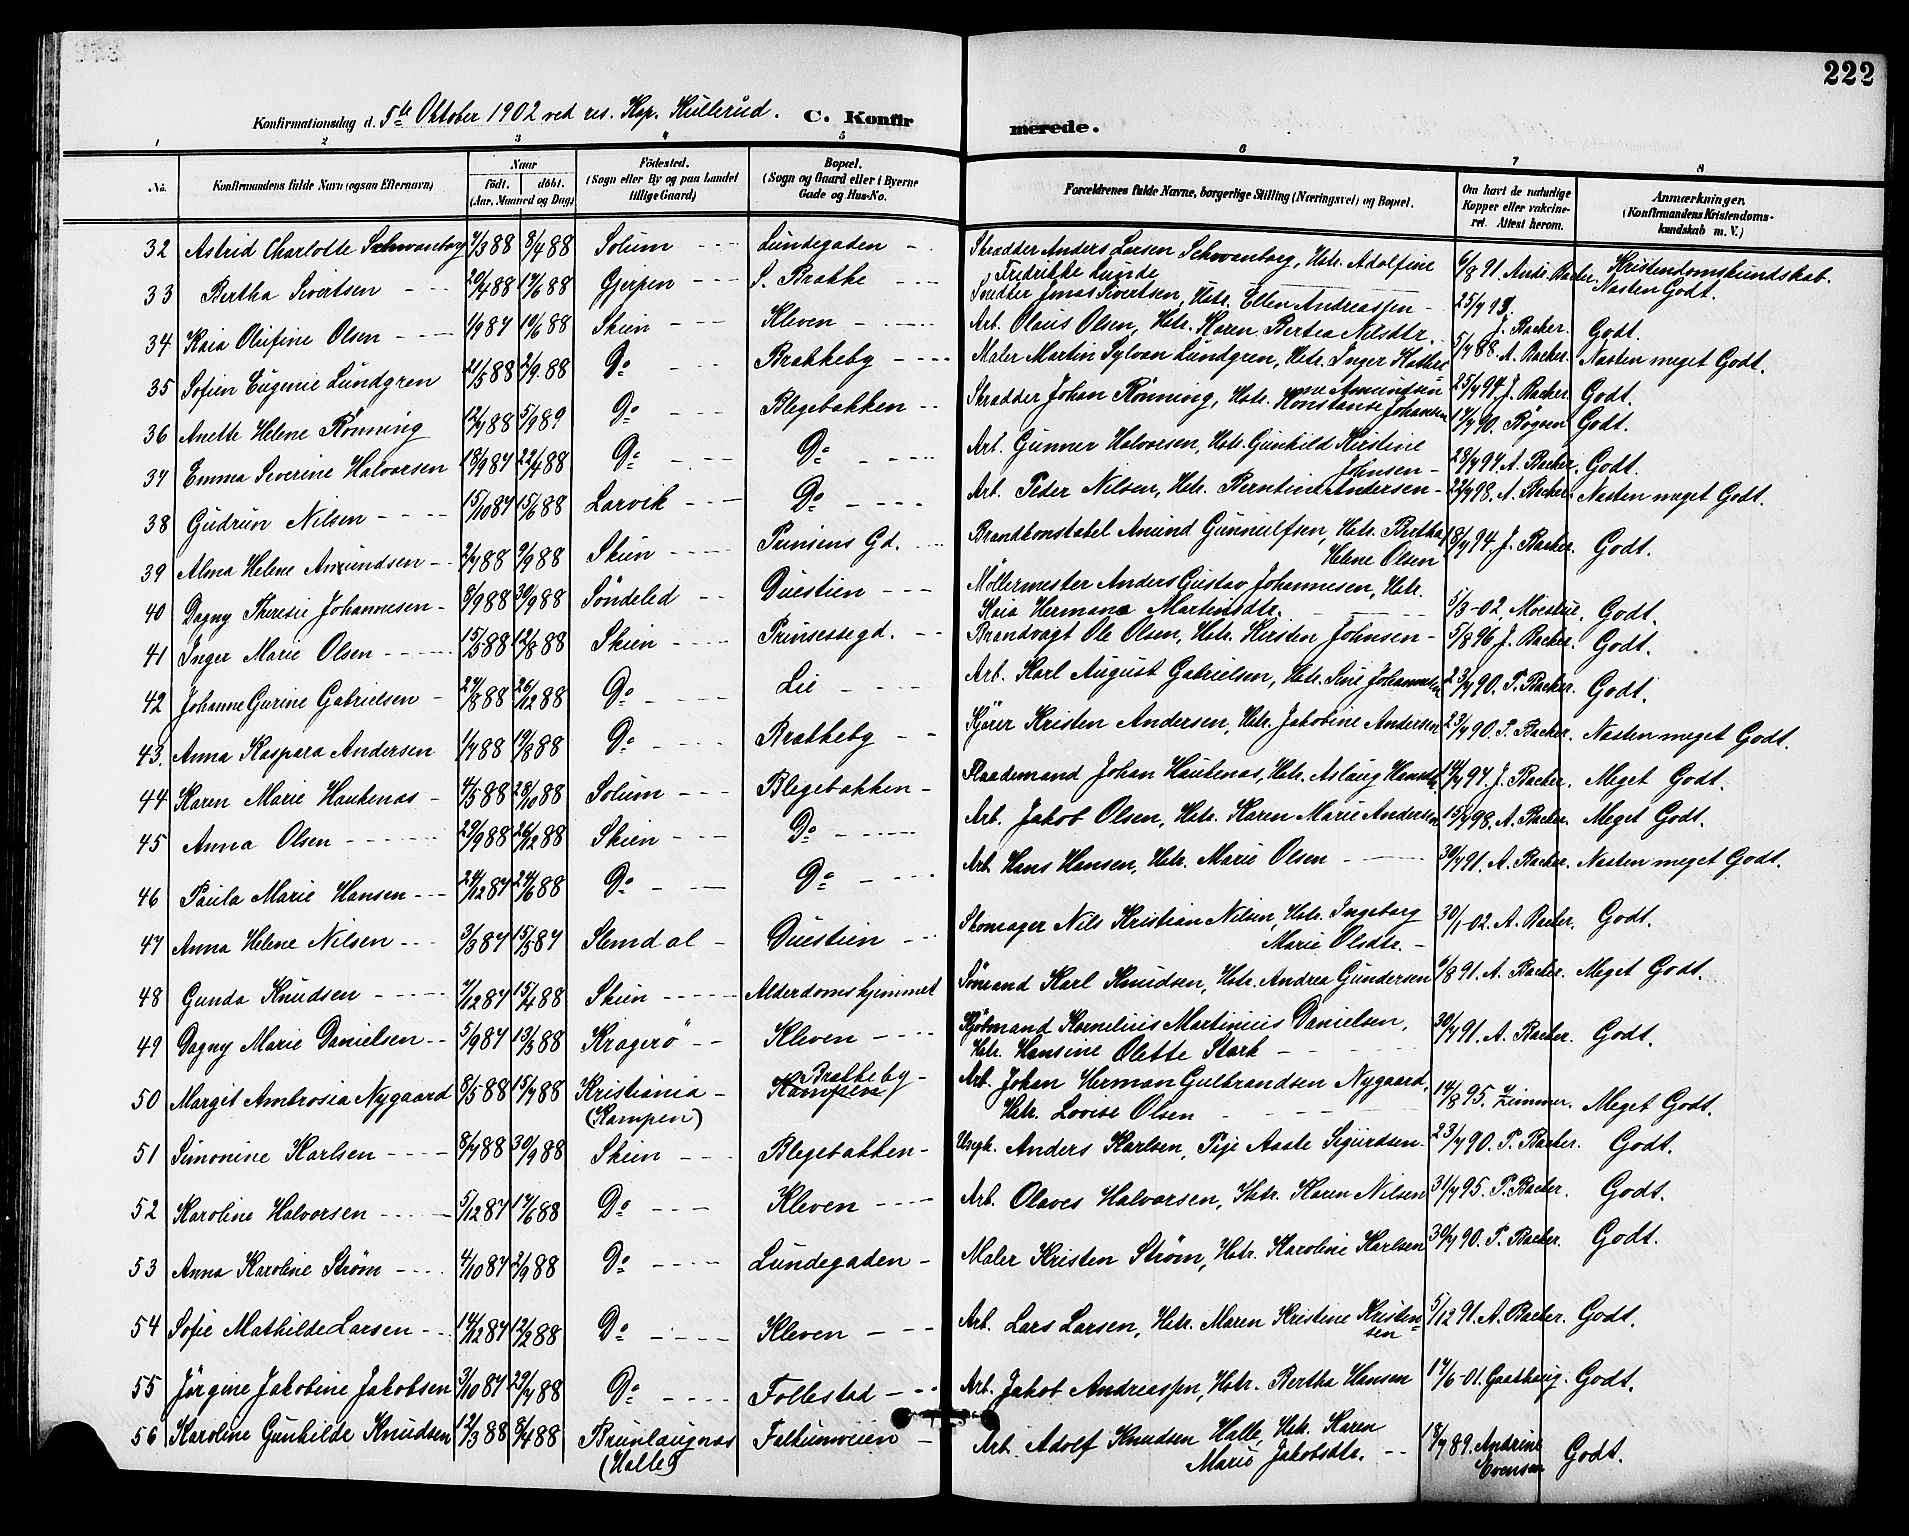 222
Konfirmationsdag d. 5te Oktober 1902 ved res. Kap. Hullerud. C. Konfirmerede.
1 2 3 4 5 6 7 8
No. Konfirmandens fulde Navn (ogsaa Efternavn) Naar født. døbt. (Aar, Maaned og Dag) Fødested. (Sogn eller By og paa Landet tillige Gaard) Bopæl. (Sogn og Gaard eller i Byerne Gade og Hus-No. Forældrenes fulde Navne, borgerlige Stilling (Næringsvei) og Bopæl. Om havt de naturlige Kopper eller vakcineret. Attest herom. Anmærkninger. (Konfirmandens Kristendomskundskab m. V.)
32 Astrid Charlotte Schwanborg 7/3 88 8/4 88 Solum Lundegaden Skrædder Anders Larsen Schwanborg, Hstr. Adolfine Fredrikke Lunde 6/8 91. Andr. Backer Kristendomskundskab. Næsten Godt.
33 Bertha Sivertsen 20/4 88 17/6 88 Gjerpen S. Brække Snedker Jonas Sivertsen, Hstr. Ellen Andreassen 25/7 93. J. Backer. Godt.
34 Kaia Olufine Olsen 1/9 87 10/6 88 Skien Kleven Arb. Olaus Olsen, Hstr. Karen Bertea Nilsdtr. 5/7 88 A. Backer. Næsten meget Godt.
35 Sofien Eugenie Lundgren 21/5 88 2/9 88 Do Brækkeby Maler Martin Sylvan Lundgren, Hstr. Inger Kathrine Amundsen 25/7 94 J. Backer. Godt.
36 Anette Helene Rønning 12/7 88 5/9 89 Do Blegebakken Skrædder Johan Rønning, Hstr. Konstanse Johansen 17/7 90. Bøgven Godt.
37 Emma Severine Halvorsen 18/9 87 22/4 88 Do Do Arb. Gunner Halvorsen, Hstr. Gunhild Kirstine Johnsen 28/7 94. A. Backer. Godt.
38 Gudrun Nilsen 15/10 87 15/6 88 Larvik Do Arb. Peder Nilsen, Hstr. Berntine Andersen 22/7 98. A. Backer. Næsten meget Godt.
39 Alma Helene Amundsen 2/7 88 9/9 88 Skien Prinsens Gd. Brandkonstabel Amund Gunnulfsen, Hstr. Bertha Helene Olsen 18/7 94. J. Backer. Godt.
40 Dagny Theresie Johannesen 8/9 88 30/9 88 Søndeled Duestien Møllermester Anders Gustav Johannesen, Hstr. Kaia Hermana Martinsdtr. 5/3-02. Moestue. Godt.
41 Inger Marie Olsen 15/5 88 12/8 88 Skien Prinsessegd. Brandvagt Ole Olsen, Hstr. Kirsten Johnsen 5/8 96 J. Backer. Godt.
42 Johanne Gurine Gabrielsen 27/8 88 26/12 88 Do Lie Arb. Karl August Gabrielsen, Hstr. Sine Johannesen 23/7 90. P. Backer. Godt.
43. Anna Kaspara Andersen 1/7 88 19/8 88 Do Brækkeby Kjører Kristen Andersen, Hstr. Jakobine Andersen 23/7 90. P. Backer. Næsten meget Godt.
44 Karen Marie Haukenæs 4/5 88 28/10 88 Solum Blegebakken Flaademand Johan Haukenæs, Hstr. Aslaug Hansdtr. 14/7 94. J. Backer. Meget Godt.
45 Anna Olsen 29/9 88 26/12 88 Skien Do Arb. Jakob Olsen, Hstr. Karen Marie Andersen 15/7 98. A. Backer. Meget Godt.
46 Paula Marie Hansen 24/12 87 24/6 88 Do Do Arb. Hans Hansen, Hstr. Marie Olsen 30/7 91. A. Backer. Næsten meget Godt.
47 Anna Helene Nilsen 3/3 87 15/5 87 Slemdal Duestien Skomager Nils Kristian Nilsen, Hstr. Ingeborg Marie Olsdtr. 30/1-02. A. Backer. Godt.
48 Gunda Knudsen 7/12 87 15/4 88 Skien Alderdomshjemmet Sømand Karl Knudsen, Hstr. Andrea Gundersen 6/8 91. A. Backer. Meget Godt.
49 Dagny Marie Danielsen 5/9 87 13/5 88 Kragerø Kleven Kjøbmand Kornelius Martinius Danielsen, Hstr. Hansine Olette Stark 30/7 91. A. Backer. Godt.
50 Margit Ambrosia Nygaard 8/5 88 15/7 88 Kristiania (Kampen) Brækkeby Kampen Arb. Johan Herman Gulbrandsen Nygaard, Hstr. Lovise Olsen 14/8 95. Zimmer. Meget Godt.
51 Simonine Karlsen 8/7 88 30/9 88 Skien Blegebakken Ungk. Anders Karlsen, Pige Aaste Sigurdsen 23/7 90. P. Backer. Godt.
52 Karoline Halvorsen 5/12 87 17/6 88 Do Kleven Arb. Olaves Halvorsen, Hstr. Karen Nilsen 31/7 95. P. Backer. Godt.
53 Anna Karoline Strøm 4/10 87 2/9 88 Do Lundegaden Maler Kristen Strøm, Hstr. Karoline Karlsen 30/7 90. P. Backer. Godt.
54 Sofie Mathilde Larsen 14/12 87 12/2 88 Do Kleven Arb. Lars Larsen, Hstr. Maren Kristine Kristensen 5/12 91. A. Backer. Godt.
55 Jørgine Jakobine Jakobsen 3/10 87 29/7 88 Do Follestad Arb. Jakob Andreassen, Hstr. Bertha Hansen 17/6-01. Gaathaug. Godt.
56 Karoline Gunhilde Knudsen 12/3 88 8/4 88 Brunlaugnæs (Halle) Falkumveien Arb. Adolf Knudsen Halle, Hstr. Karen Marie Jakobsdtr. 18/7 89. Andrine Evensen Godt.